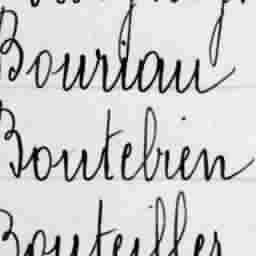 Bouriau
Boutebien
Bouteiller